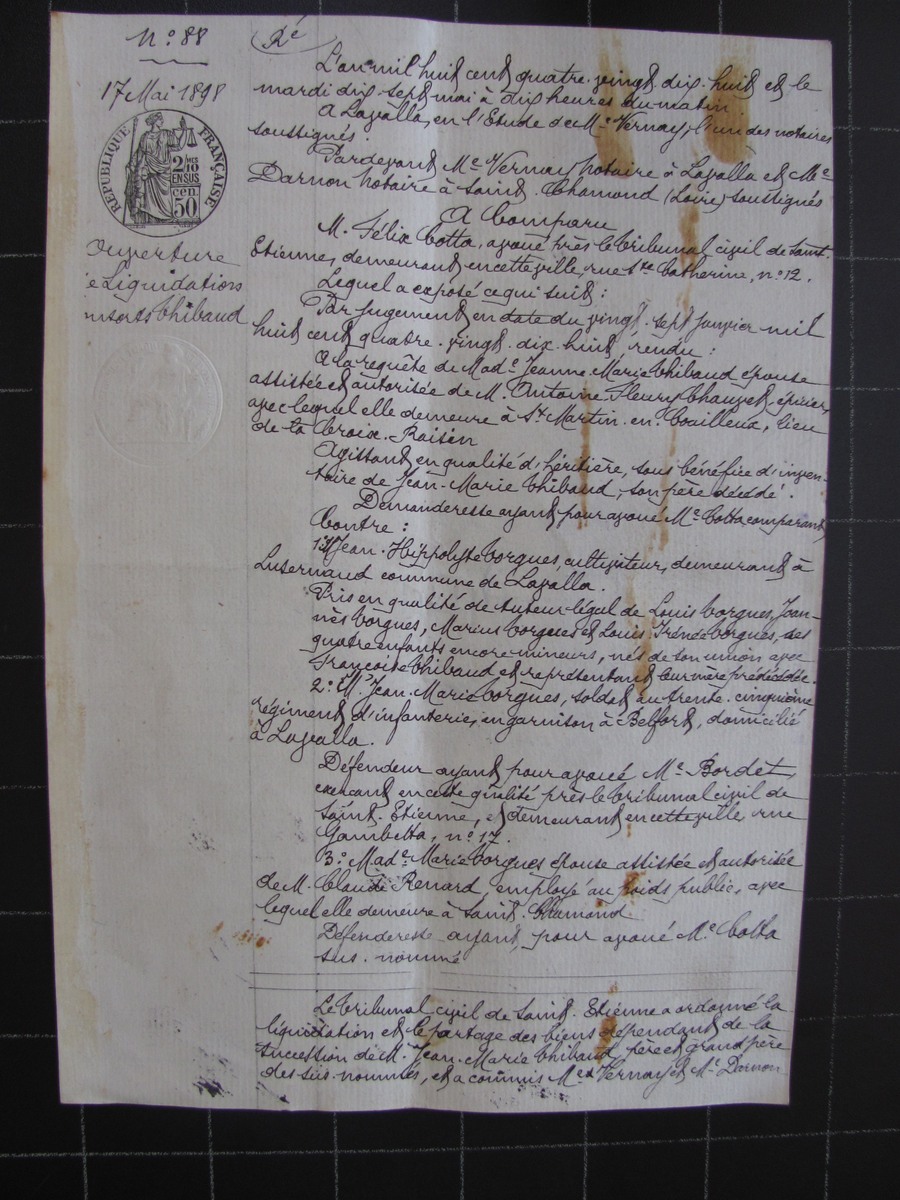 N° 88
Ré
17 Mai 1898
RÉPUBLIQUE FRANÇAISE
2/10 MES
EN SUS
50 cen.
Ouverture
e Liquidations
nsorts Thibaud
L'an mil huit cent quatre-vingt dix-huit et le
mardi dix-sept mai à dix heures du matin
A Lavalla, en l'Etude de Me Vernay, l'un des notaires
soussignés.
Pardevant Me Vernay notaire à Lavalla et Me
Darnon notaire à Saint-Chamond (Loire) soussignés
A Comparu
M. Félix Cotta, avoué près le tribunal civil de Saint-
Etienne, demeurant en cette ville, rue Ste Catherine, n° 12.
Lequel a exposé ce qui suit :
Par jugement en date du vingt-sept janvier mil
huit cent quatre-vingt-dix-huit, rendu :
A la requête de Made Jeanne-Marie Thibaud épouse
assistée et autorisée de M. Antoine-Fleury Chauvet, épicier,
avec lequel elle demeure à St Martin-en-Coailleux, lieu
de la Croix-Raisin
Agissant en qualité d'héritière, sous bénéfice d'inven-
taire de Jean-Marie Thibaud, son père décédé.
Demanderesse ayant pour avoué Me Cotta comparant
Contre :
1° Jean-Hippolyte Corgues, cultivateur, demeurant à
Luzernaud commune de Lavalla.
Pris en qualité de tuteur légal de Louis Corgues, Joan-
nès Corgues, Marius Corgues et Louis Irénée Corgues, ses
quatre enfants encore mineurs, nés de son union avec
Françoise Thibaud et représentant leur mère prédécédée.
2° M. Jean-Marie Corgues, soldat au trente-cinquième
régiment d'infanterie, en garnison à Belfort, domicilié
à Lavalla.
Défendeur ayant pour avoué Me Bordet,
exerçant en cette qualité près le tribunal civil de
Saint-Etienne, et demeurant en cette ville, rue
Gambetta, n° 17.
3° Made Marie Corgues épouse assistée et autorisée
de M. Claude Renard, employé au poids public, avec
lequel elle demeure à Saint-Chamond
Défenderesse ayant pour avoué Me Cotta
sus-nommé
Le tribunal civil de Saint-Etienne a ordonné la
liquidation et le partage des biens dépendant de la
succession de M. Jean-Marie Thibaud, père et grand père
des sus-nommés, et a commis Me Vernay et Me Darnon